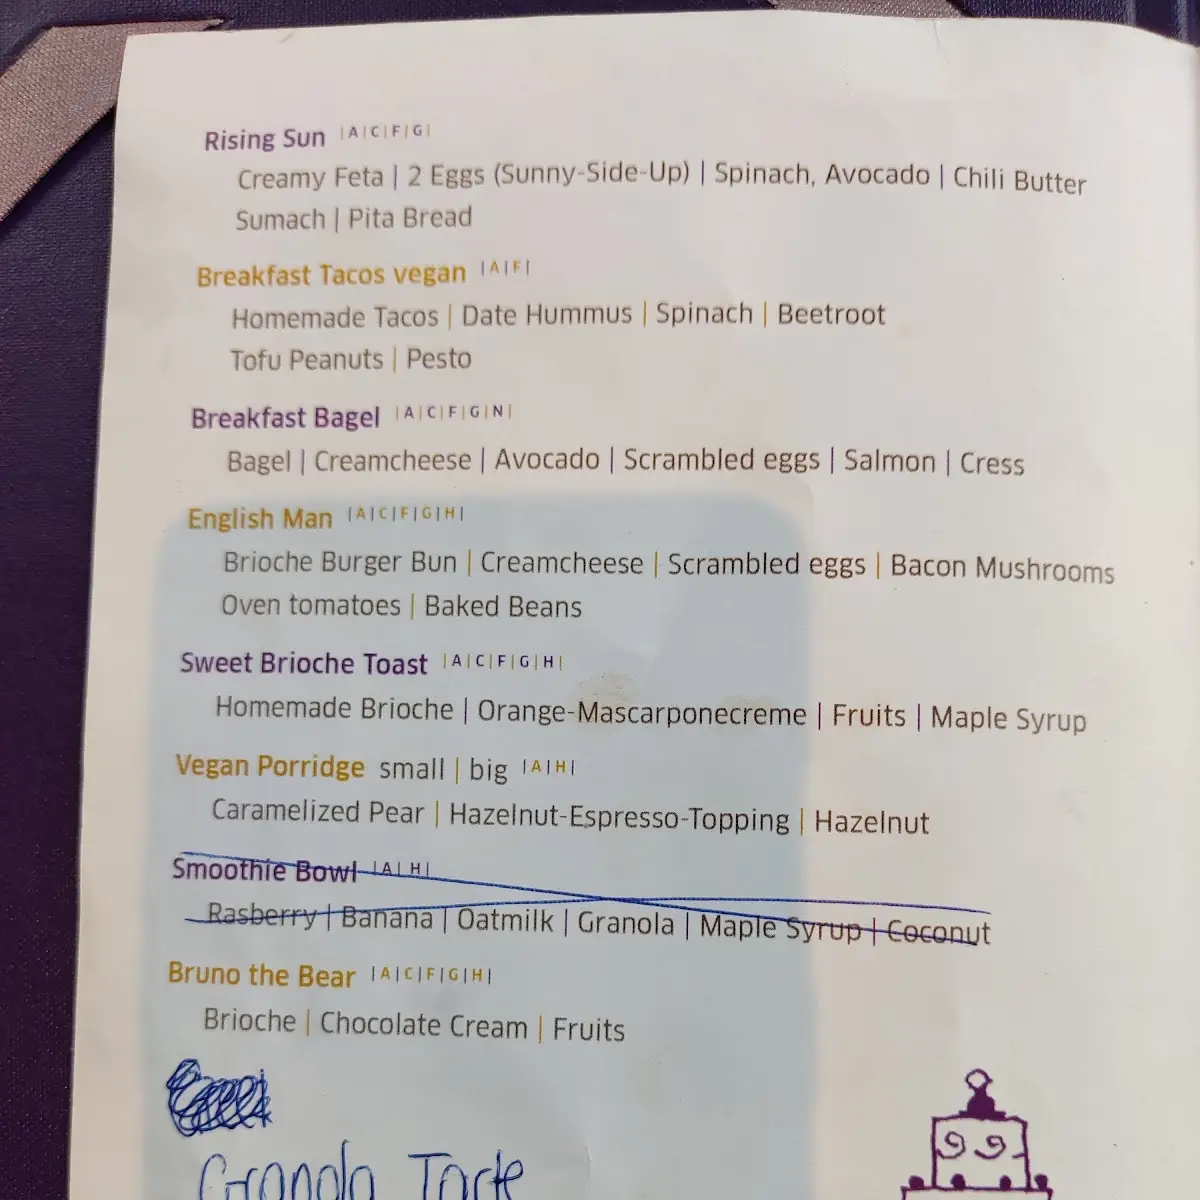 Rising Sun |A|C|F|G|
Creamy Feta | 2 Eggs (Sunny-Side-Up) | Spinach, Avocado | Chili Butter
Sumach | Pita Bread
Breakfast Tacos vegan |A|F|
Homemade Tacos | Date Hummus | Spinach | Beetroot
Tofu Peanuts | Pesto
Breakfast Bagel |A|C|F|G|N|
Bagel | Creamcheese | Avocado | Scrambled eggs | Salmon | Cress
English Man |A|C|F|G|H|
Brioche Burger Bun | Creamcheese | Scrambled eggs | Bacon Mushrooms
Oven tomatoes | Baked Beans
Sweet Brioche Toast |A|C|F|G|H|
Homemade Brioche | Orange-Mascarponecreme | Fruits | Maple Syrup
Vegan Porridge small | big |A|H|
Caramelized Pear | Hazelnut-Espresso-Topping | Hazelnut
Smoothie Bowl |A|H|
Rasberry | Banana | Oatmilk | Granola | Maple Syrup | Coconut
Bruno the Bear |A|C|F|G|H|
Brioche | Chocolate Cream | Fruits
Granola Torte